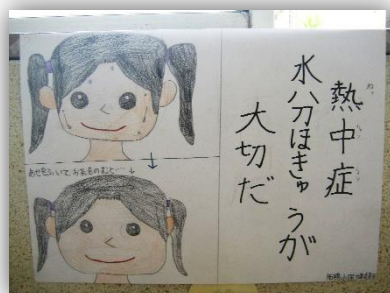 熱中症
水分ほきゅうが
大切だ
あせをふいて、お茶をのむと…